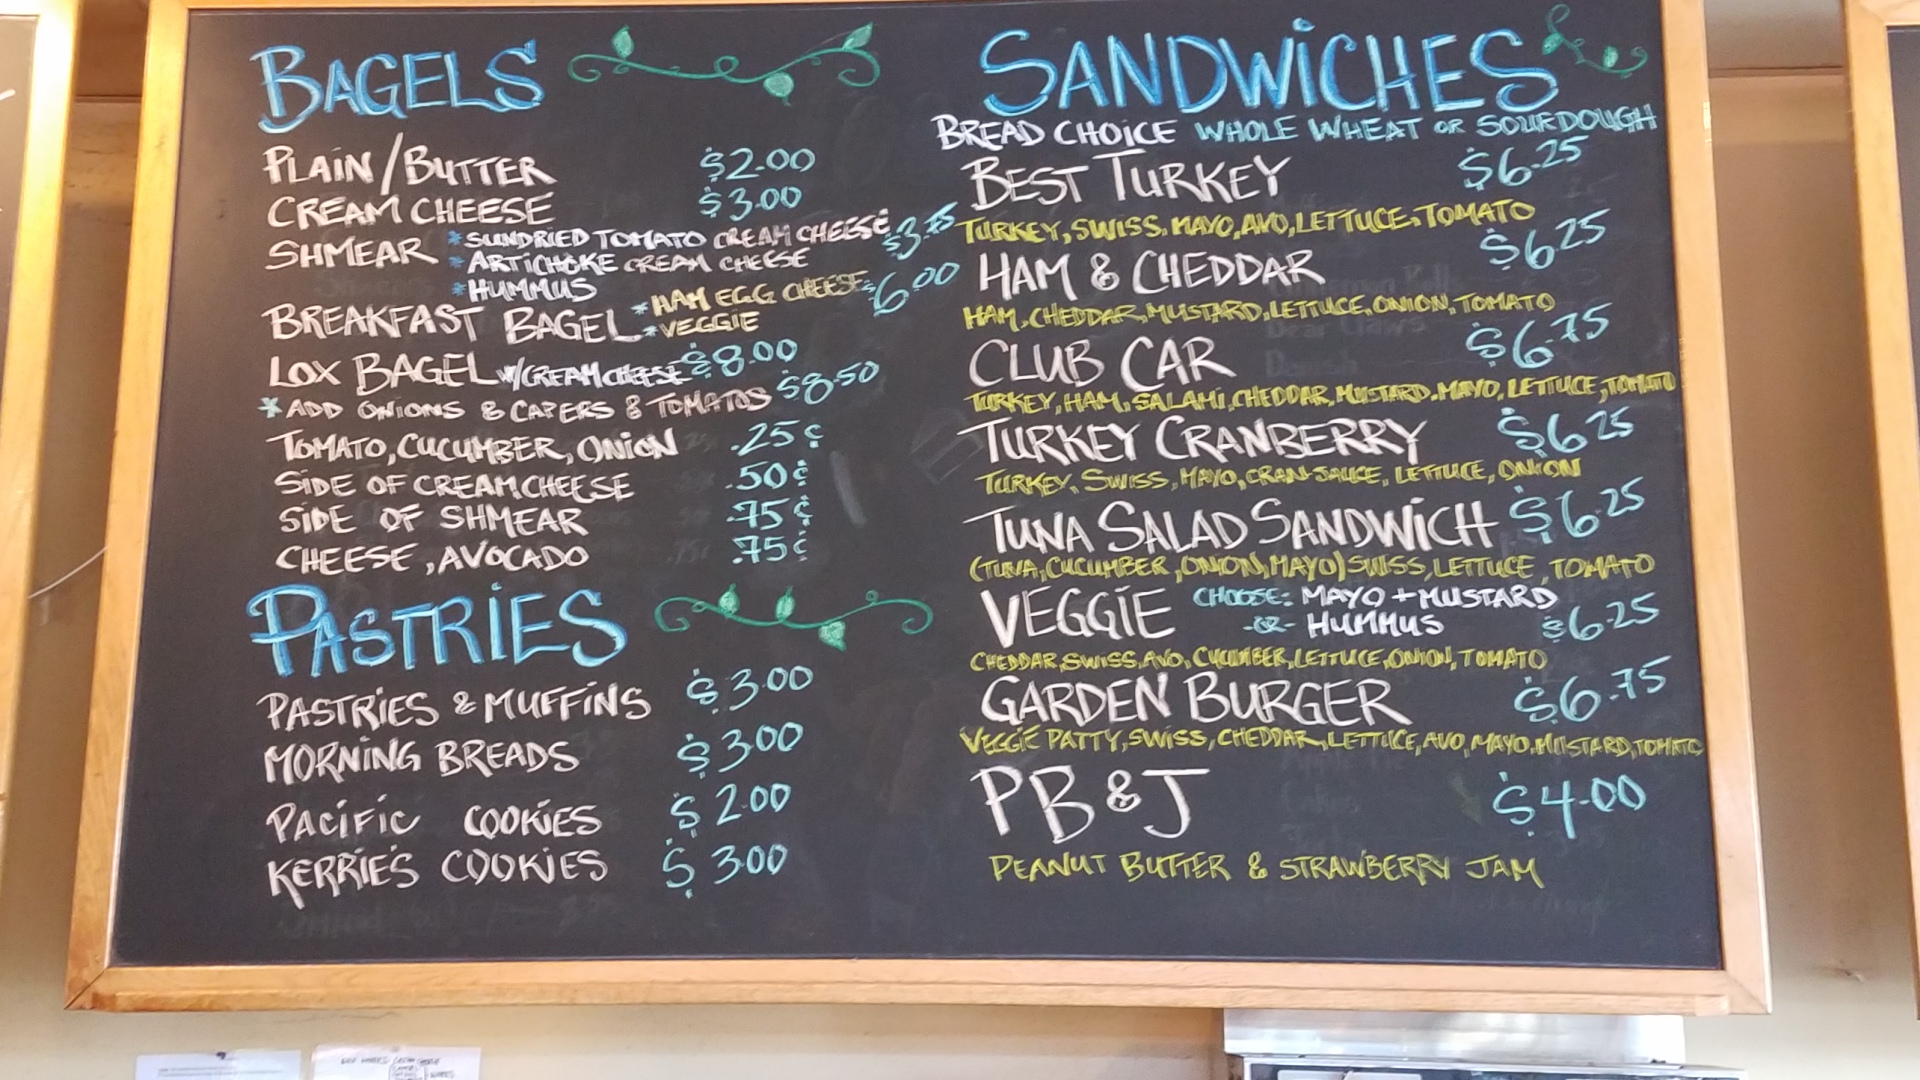 BAGELS
PLAIN/BUTTER $2.00
CREAM CHEESE $3.00
SHMEAR *SUNDRIED TOMATO CREAM CHEESE $3.75
*ARTICHOKE CREAM CHEESE
*HUMMUS
BREAKFAST BAGEL *HAM EGG CHEESE $6.00
*VEGGIE
LOX BAGEL W/CREAM CHEESE $8.00
*ADD ONIONS & CAPERS & TOMATOS $8.50
TOMATO, CUCUMBER, ONION .25¢
SIDE OF CREAM CHEESE .50¢
SIDE OF SHMEAR .75¢
CHEESE, AVOCADO .75¢
PASTRIES
PASTRIES & MUFFINS $3.00
MORNING BREADS $3.00
PACIFIC COOKIES $2.00
KERRIE'S COOKIES $3.00
SANDWICHES
BREAD CHOICE WHOLE WHEAT OR SOURDOUGH
BEST TURKEY $6.25
TURKEY, SWISS, MAYO, AVO, LETTUCE, TOMATO
HAM & CHEDDAR $6.25
HAM, CHEDDAR, MUSTARD, LETTUCE, ONION, TOMATO
CLUB CAR $6.75
TURKEY, HAM, SALAMI, CHEDDAR, MUSTARD, MAYO, LETTUCE, TOMATO
TURKEY CRANBERRY $6.25
TURKEY, SWISS, MAYO, CRAN-SAUCE, LETTUCE, ONION
TUNA SALAD SANDWICH $6.25
(TUNA, CUCUMBER, ONION, MAYO) SWISS, LETTUCE, TOMATO
VEGGIE CHOOSE: MAYO + MUSTARD
-OR- HUMMUS $6.25
CHEDDAR, SWISS, AVO, CUCUMBER, LETTUCE, ONION, TOMATO
GARDEN BURGER $6.75
VEGGIE PATTY, SWISS, CHEDDAR, LETTUCE, AVO, MAYO, MUSTARD, TOMATO
PB&J $4.00
PEANUT BUTTER & STRAWBERRY JAM